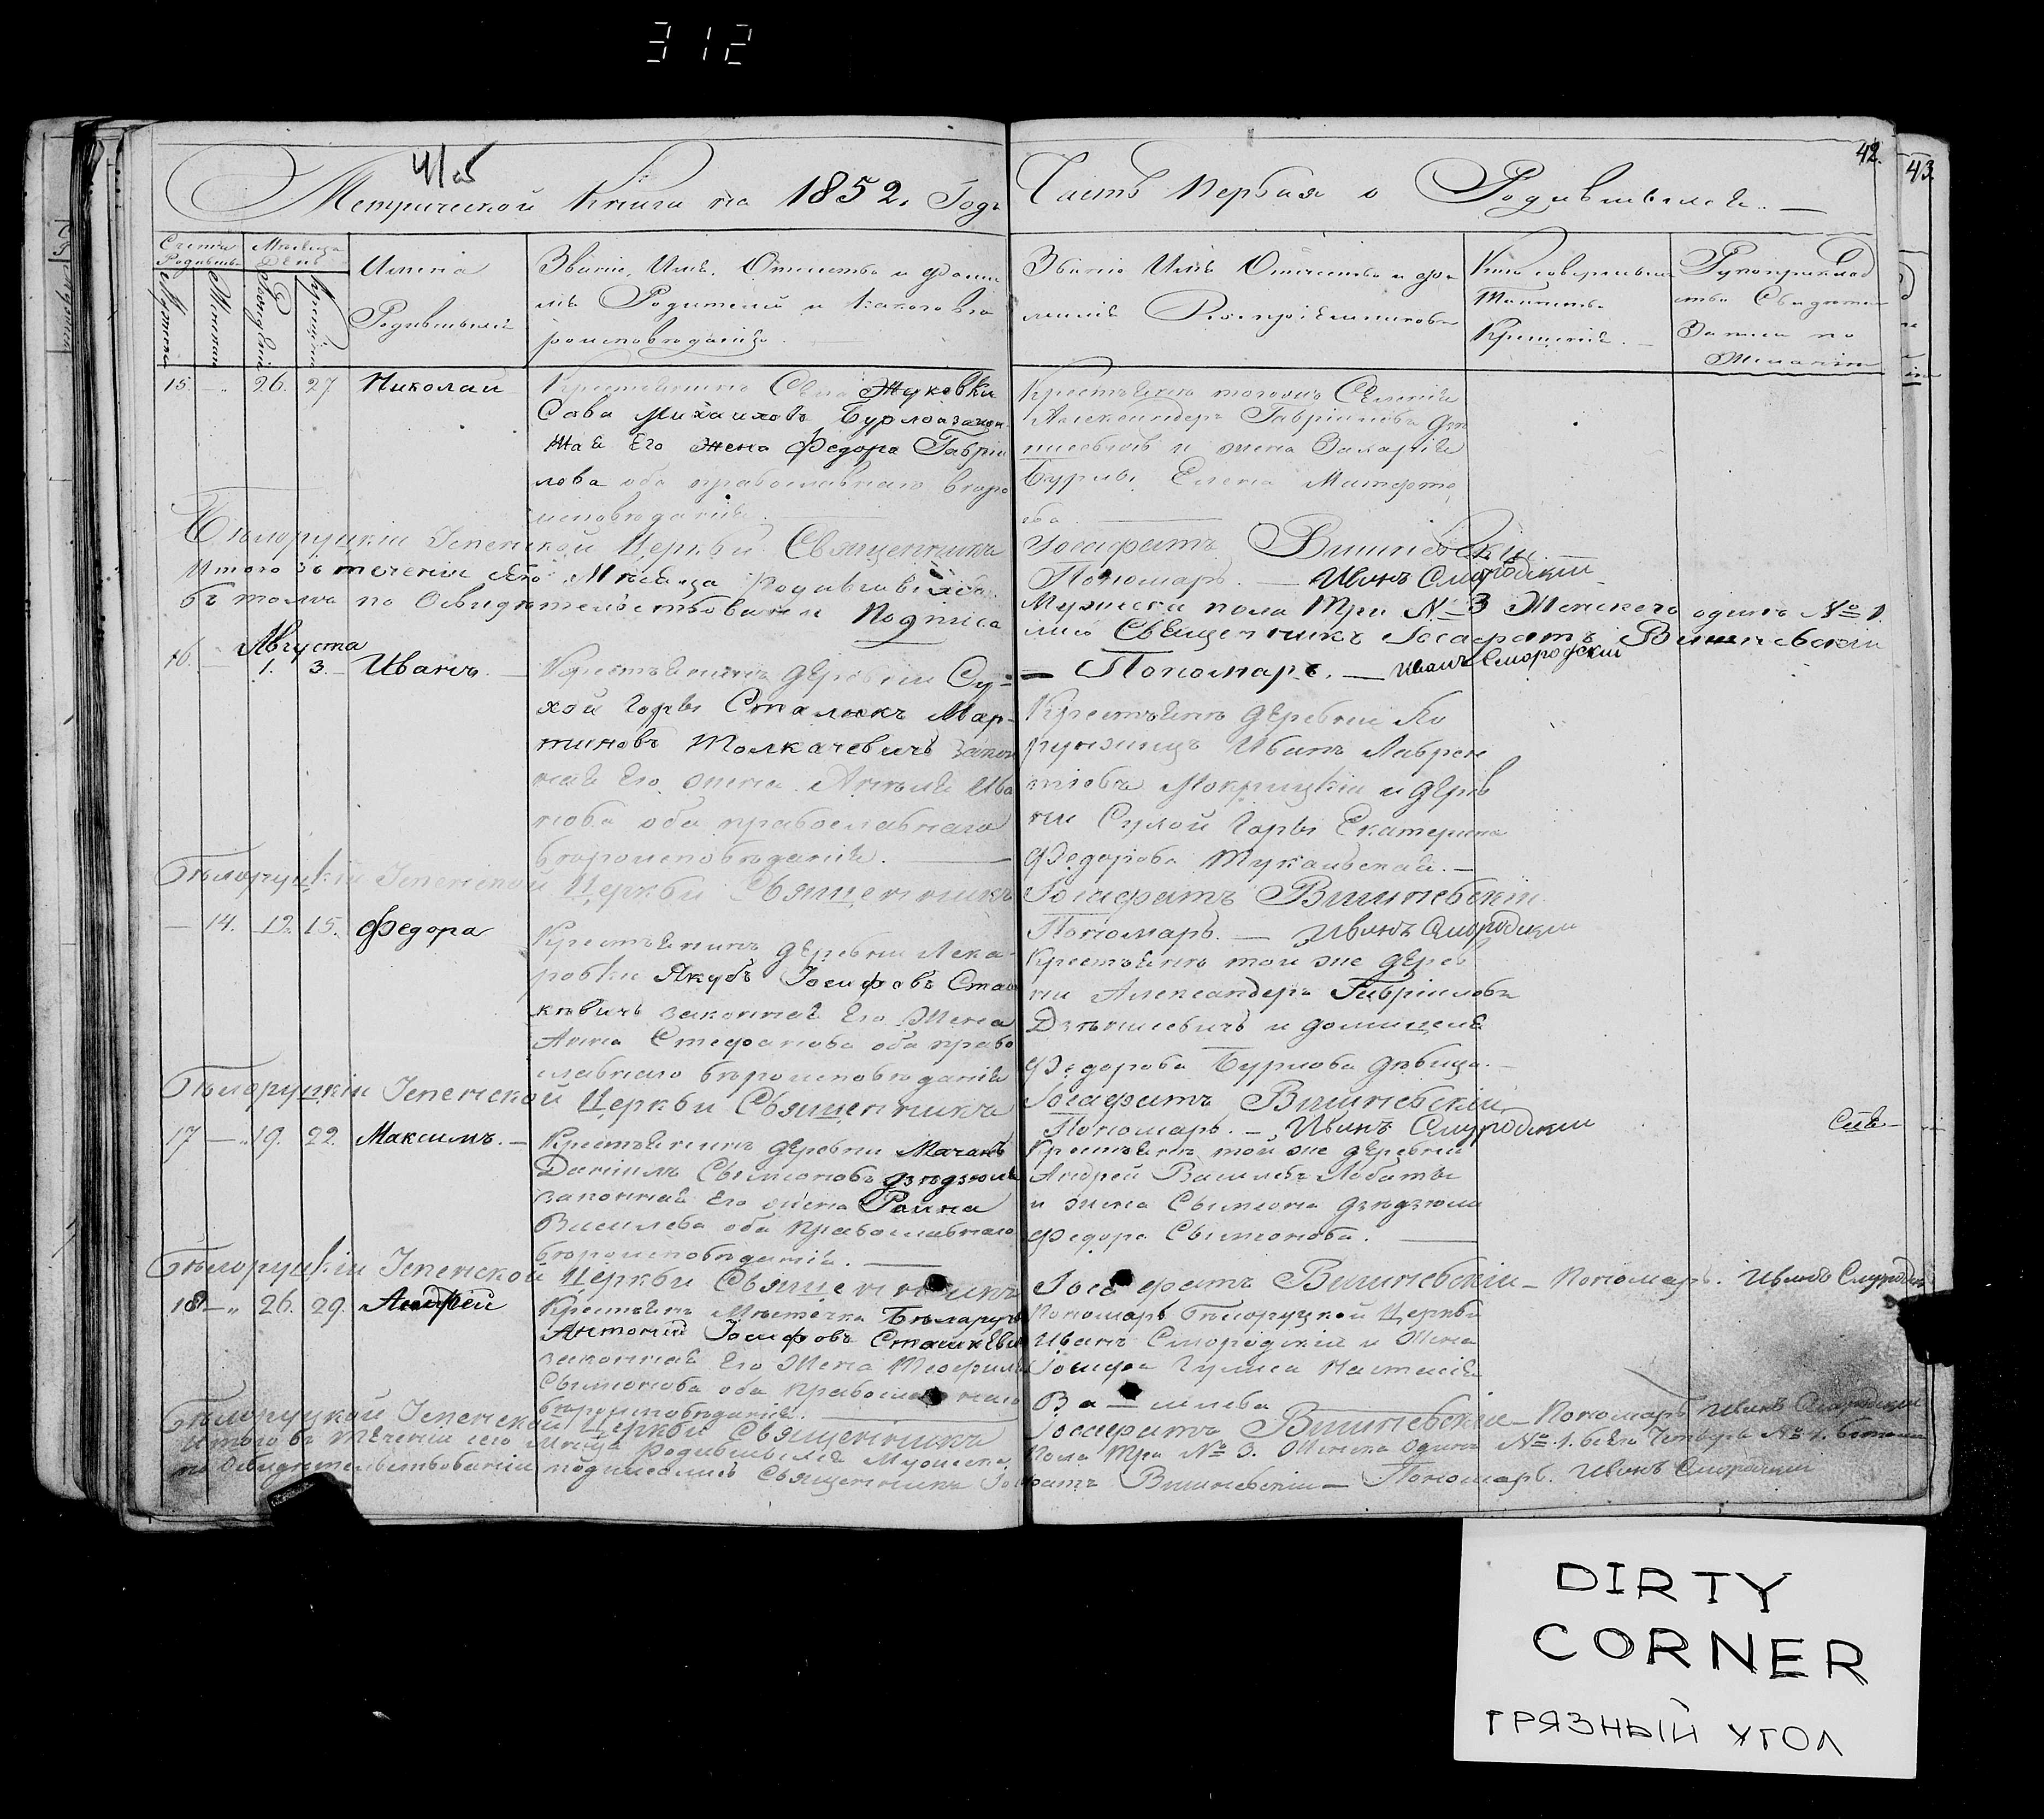 312
41об
42.
43.
Метрической Книги на 1852. Годъ
Часть Первая о Родившихся. —
Счетъ Родивш.
Мѣсяцъ День
Имена
Родившихся
Званіе, Имя, Отчество и фами
лія Родителей и Какого вѣ
роисповѣданія.
Званіе Имя Отечество и фа
милія Воспріемниковъ
Кто совершалъ
Таинство
Крещенія. —
Рукоприклад
ство Свидѣте
Записи по
Желанію
15. — 26. 27 Николай
Крестьянинъ Села Жуковки
Сава Михаиловъ Бурло закон
ная Его жена Федора Гаврiи
лова оба православнаго вѣро
исповѣданія.
Крестьянинъ тогожъ Селенія
Александеръ Гавріиловъ
и жена Захарія
Бурлы Елена
ова
Бѣлоруцкія Успенской Церкви Священникъ
Іосафатъ Вишневскій. —
Итого въ теченіи сего Мѣсяца Родившихся
Пономарь. — Иванъ Смородскій
въ томъ по Освидѣтельствованіи Подписа
Мужеска пола Три № 3 Женскаго одинъ № 1.
лись Священникъ Іосафатъ Вишневскій
— Пономарь. — Иванъ Смородскій
Августа
16. — 1. 3. — Иванъ. —
Крестьянинъ деревни Су=
хой Горы Сталюкъ Мар-
тиновъ Толкачевичъ Закон
ная Его жена Анѣля Ива
нова оба православнаго
вѣроисповѣданія. —
Крестьянинъ деревни Ко
Иванъ Лаврен
тіовъ Мокрицкій и дерев
ни Сухой Горы Екатерина
Федорова
Бѣлоруцкія Успенской Церкви Священникъ
Іосафатъ Вишневскій
Пономарь. — Иванъ Смородскій
— 14. 12. 15. Федора
Крестьянинъ деревни Лека
ровки Якубъ Іосифовъ Сташ
кѣвичъ законная Его Жена
Анна Стефанова оба право
славнаго вѣроисповѣданія
Крестьянинъ той же дерев
ни Александеръ Гавріиловъ
и
Федорова Бурлова дѣвица. —
Бѣлоруцкія Успенской Церкви Священникъ
Іосафатъ Вишневскій
Пономарь. — Иванъ Смородскій
17 — 19. 22. Максимъ. —
Крестьянинъ деревни Мачанъ
Даніилъ Сымоновъ Дзѣдзюля
законная Его жена Раина
Василева оба Православнаго
вѣроисповѣданія. —
Крестьянинъ той же деревни
Андрей Василевъ Лобатый
и жена Сымона Дзѣдзюли
Федора Сымонова. —
Бѣлоруцкія Успенской Церкви Священникъ
Іосафатъ Вишневскій — Пономарь. Иванъ Смородскій
18 — „ 26. 29. Андрей
Крестьянинъ Мѣстечка Бѣларучъ
Антоній Іосифовъ Сташкеви
законная Его Жена Теофилія
Сымонова оба Православнаго
вѣроисповѣданія.
Пономарь Бѣлоруцкой Церкви
Иванъ Смородскій и Жена
Іосифа Настасія
Василева
Бѣлоруцкой Успенской Церкви Священникъ
Іосафатъ Вишневскій — Пономарь Иванъ Смородскій
Итого въ теченіи сего Мѣсяца Родившихся Мужеска
Пола Три № 3. Женска Одинъ № 1. всѣхъ Четверо № 4. въ томъ
по Освидѣтельствованіи подписались Священникъ Іосафатъ Вишневскій — Пономарь. Иванъ Смородскій
DIRTY
CORNER
ГРЯЗНЫЙ УГОЛ